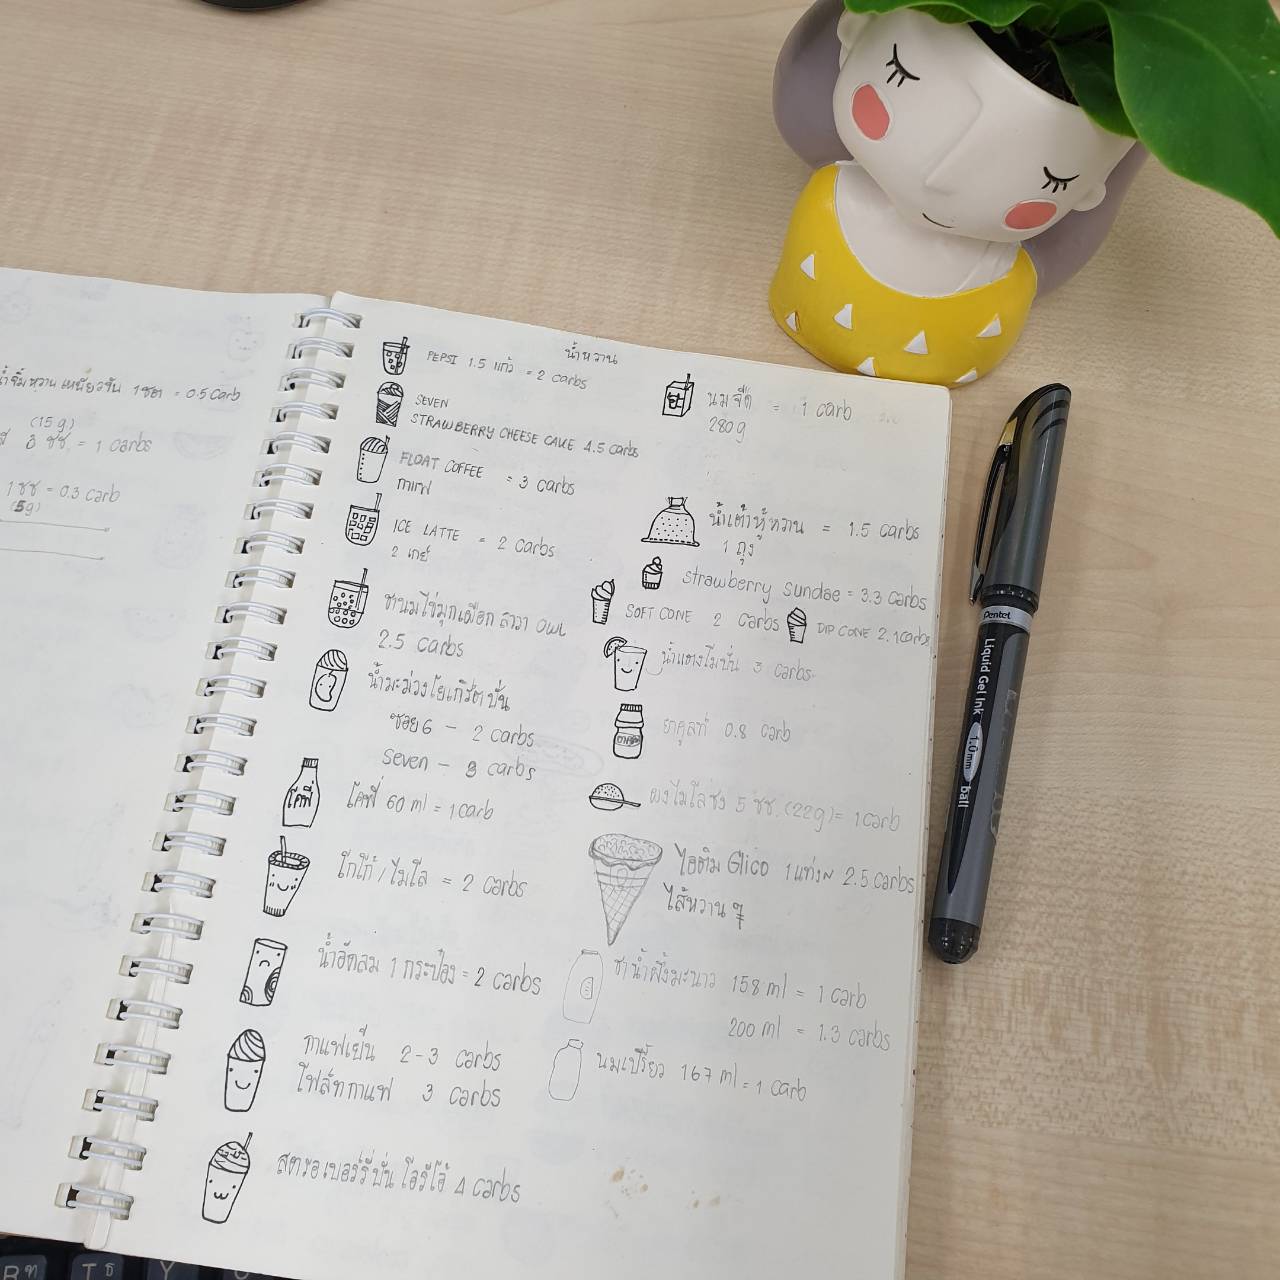 น้ำจิ้มหวาน เหนียวข้น 1 ชต = 0.5 Carb
(15 g)
3 ชช. = 1 carbs
1 ชช = 0.3 carb
(5g)
น้ำหวาน
PEPSI 1.5 แก้ว = 2 carbs
SEVEN
STRAWBERRY CHEESE CAKE 4.5 carbs
FLOAT COFFEE = 3 carbs
กาแฟ
ICE LATTE = 2 carbs
2 เกย์
ชานมไข่มุกเผือก ลาวา OWL
2.5 carbs
น้ำมะม่วงโยเกิร์ตปั่น
ซอย 6 - 2 carbs
seven - 3 carbs
โคฟี่
โคฟี่ 60 ml = 1 carb
โกโก้ / ไมโล = 2 carbs
น้ำอัดลม 1 กระป๋อง = 2 carbs
กาแฟเย็น 2-3 carbs
โฟลัทกาแฟ 3 carbs
สตรอเบอร์รี่ปั่น โอริโอ้ 4 carbs
นมจืด = 1 carb
280 g
น้ำเต้าหู้หวาน = 1.5 carbs
1 ถุง
strawberry sundae = 3.3 carbs
SOFT CONE 2 carbs
DIP CONE 2.1 carbs
น้ำแตงโมปั่น 3 carbs
ยาคูลท์ 0.8 carb
ผงไมโลชง 5 ชช. (22g) = 1 carb
ไอติม Glico 1 แท่ง ~ 2.5 carbs
ไส้หวาน ๆ
ชาน้ำผึ้งมะนาว 158 ml = 1 carb
200 ml = 1.3 carbs
นมเปรี้ยว 167 ml = 1 carb
Pentel
Liquid Gel Ink 1.0mm ball
R
T
Y